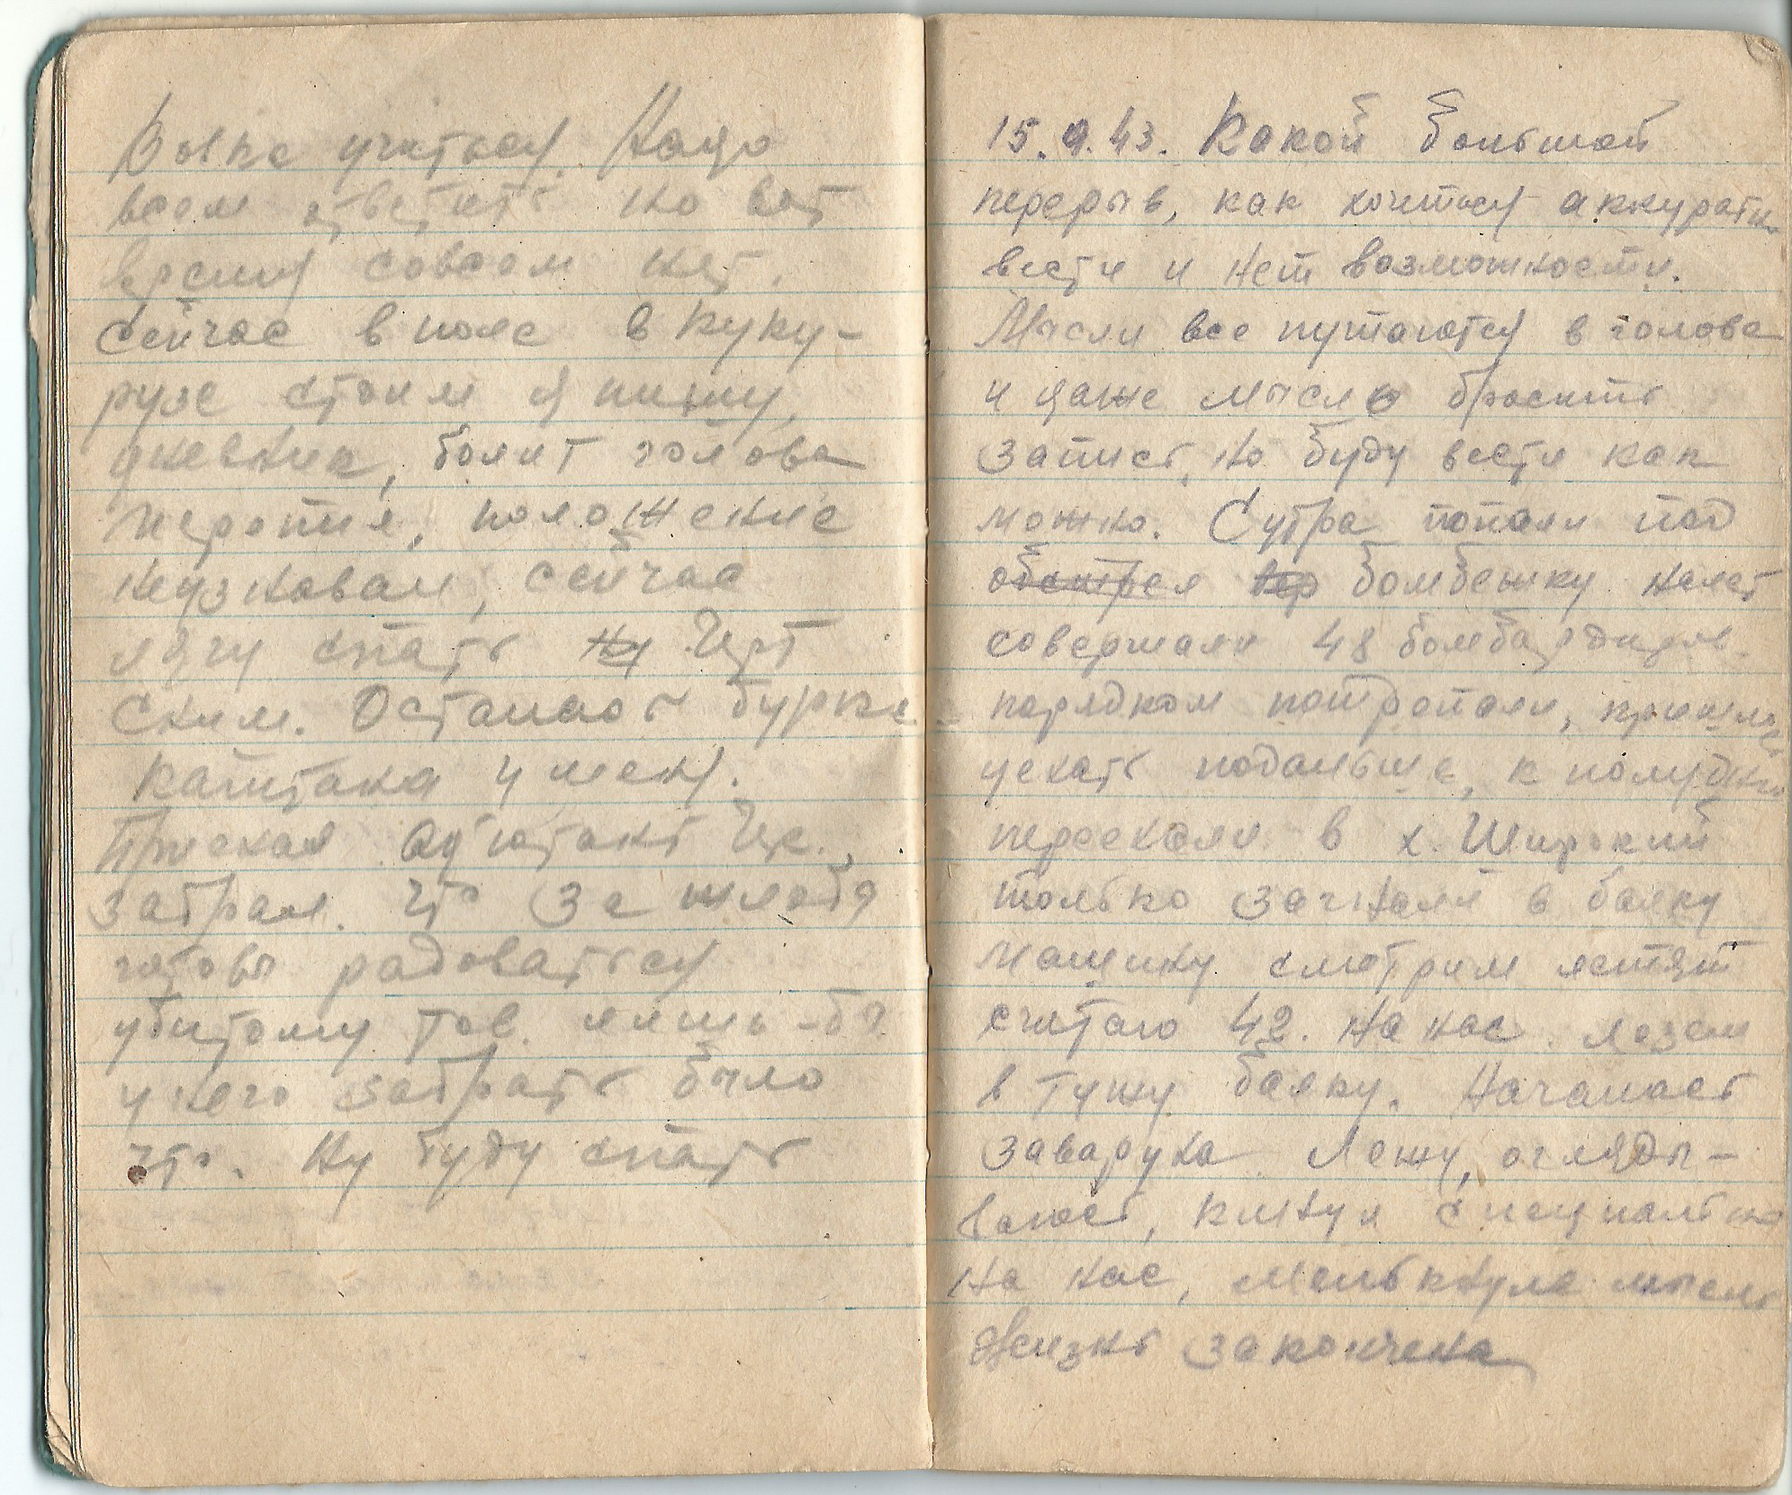 учиться. Надо
всем ответить но вот
время совсем нет.
Сейчас в поле в куку-
рузе стоим я пишу
дневник, болит голова
положение
сейчас
лягу спать
ским. Осталась бурка
капитана у меня.
Приехал ад'ютант
забрал. Что за
готовы радоваться
убитому тов. лишь-бы
у него забрать было
что. Ну буду спать
15.9.43. Какой большой
перерыв, как хочиться аккуратно
вести и нет возможности.
Мысли все путаются в голове
и даже мысль бросить
запись, но буду вести как
можно. Сутра попали под
обстрел бомбежку налет
совершали 48 бомбардиров.
порядком потрепали, пришлось
уехать подальше, к полудню
переехали в х. Широкий
только загнали в балку
машину смотрим летят
считаю 42. На нас. лезем
в туже балку. Начинает
заваруха. Лежу, огляды-
ваюсь, кинул специально
на нас, мелькнула мысль
Жизнь закончена